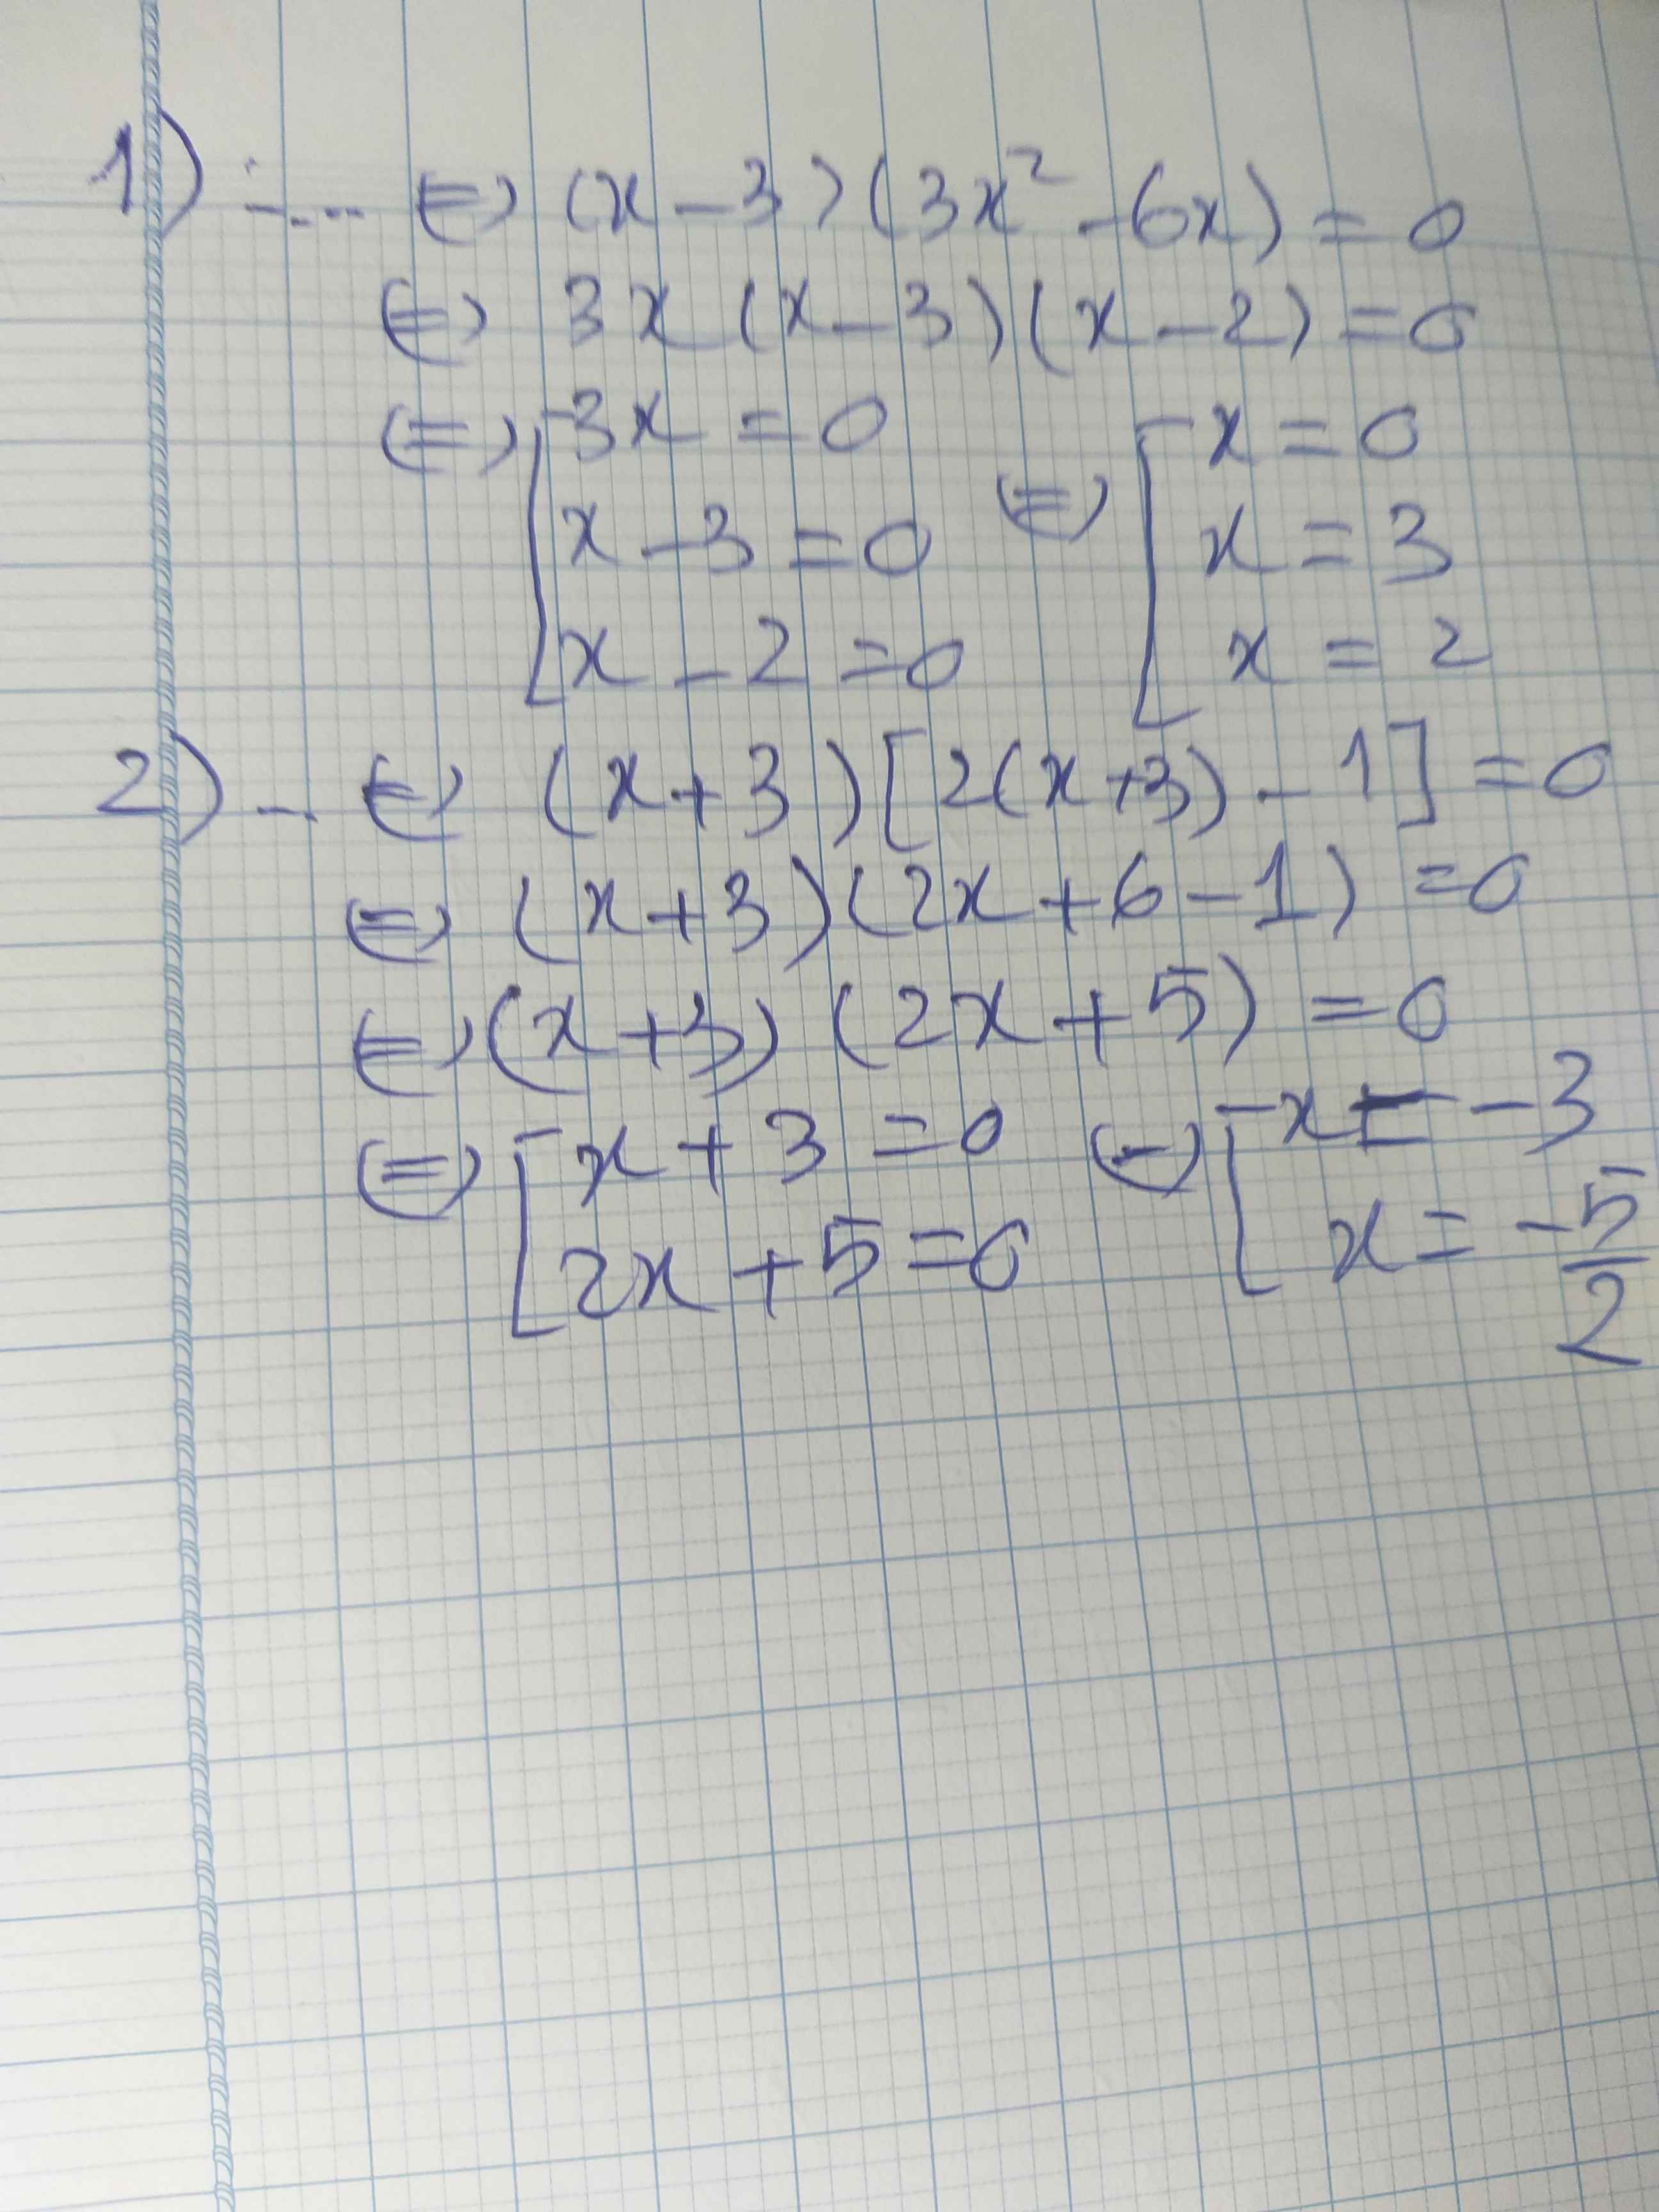 1) .... <=> (x - 3)(3x² - 6x) = 0
<=> 3x (x - 3)(x - 2) = 0
<=> [ 3x = 0 <=> [ x = 0
x - 3 = 0 x = 3
x - 2 = 0 x = 2
2) -. <=> (x + 3)[2(x + 3) - 1] = 0
<=> (x + 3)(2x + 6 - 1) = 0
<=> (x + 3)(2x + 5) = 0
<=> [ x + 3 = 0 <=> [ x = -3
2x + 5 = 0 x = -5/2